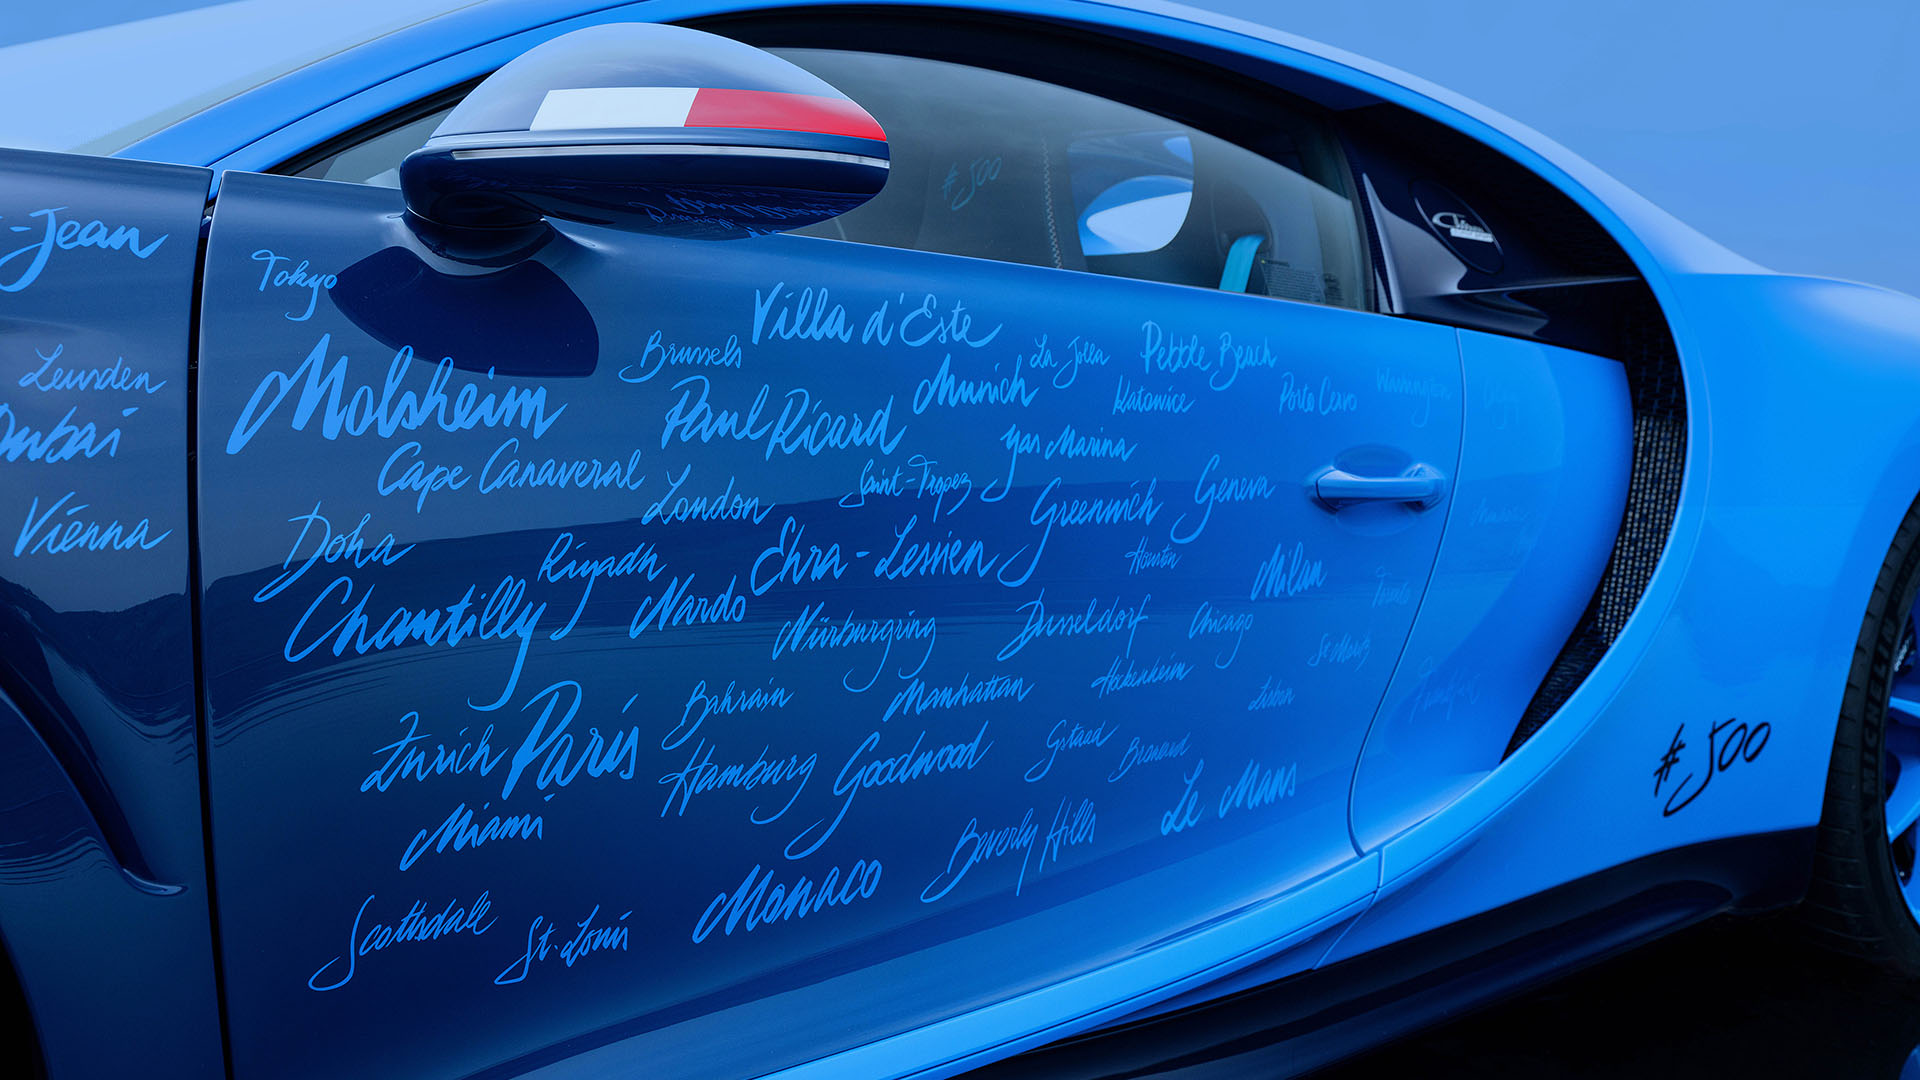 -Jean
Leusden
Dubai
Vienna
# 500
Tokyo
Villa d'Este
Brussels
Molsheim
Munich
La Jolla
Pebble Beach
Paul Ricard
Katowice
Porto Cervo
Warrington
Cape Canaveral
Yas Marina
London
Saint-Tropez
Greenwich
Geneva
Doha
Riyadh
Ehra-Lessien
Houston
Milan
Chantilly
Nardo
Nürburgring
Dusseldorf
Chicago
St Moritz
Bahrain
Manhattan
Hockenheim
Lisbon
Frankfurt
Zurich
Paris
Hamburg
Goodwood
Gstaad
Broward
# 500
Miami
Beverly Hills
Le Mans
Monaco
Scottsdale
St. Louis
MICHELIN